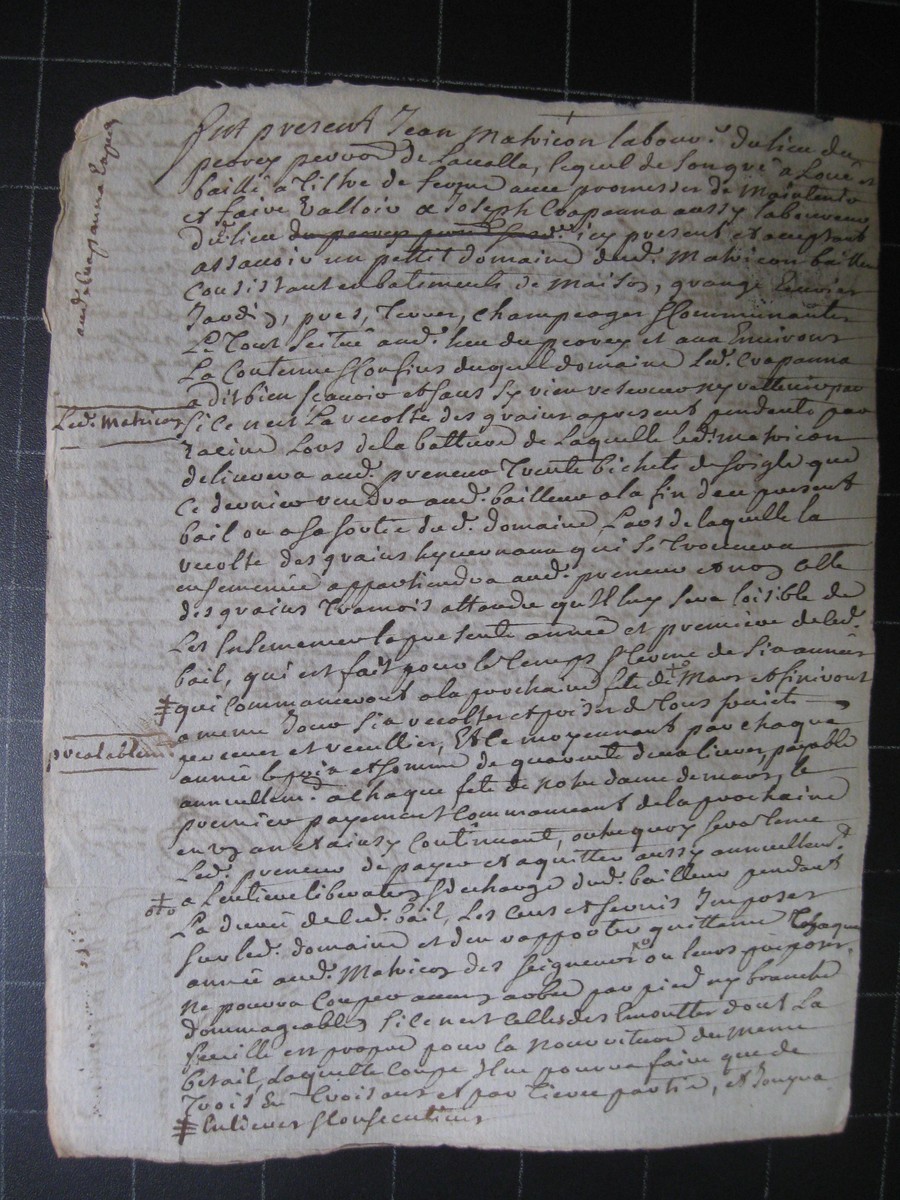 fut present Jean Matricon labour.r du lieu du
perrey parr.se de Lavalla, lequel de son gré a Loué et
baillé a tiltre de ferme avec promesses de maintenir
et faire valloir a Joseph Crapanna aussy laboureur
dud. lieu du perrey icy present et acceptant
assavoir un pettit domaine dud. Matricon bailleur
Consistant en batiments de maison, grange Ecurier
Jardin, prés, terres, champeages & Communautés
Le Tout scitué aud. lieu du perrey et aux Environs
La Contenue & Confins duquel domaine led. Crapanna
a dit bien scavoir et sans s'y rien reserver ny rettenir par
Led. Matricon
si ce n'est La recolte des grains apresent pendante par
racine Lors de la batture de Laquelle led. Matricon
delivrera aud. preneur trente bichets de soigle que
Ce dernier rendra aud. bailleur a la fin du present
bail ou a sa sortie dud. domaine Lors de laquelle la
recolte des grains hyvernaux qui se trouvera
ensemencée appartiendra aud. preneur et non celle
des grains tramois attendu qu'il luy sera loisible de
Les Ensemencer la presente année et premiere de led.
bail, qui est fait pour le temps & terme de six années
qui Commanceront a la prochaine fete de Mars et finiront
a meme Jour six recoltes et prises de tous fruits
percevoir et recuillir, Et le moyennant par chaque
prealablem.
année le prix et somme de quarante deux livres, payable
annuellem.t a chaque fete de notre dame de mars, le
premier payement Commancant de la prochaine
en un an et ainsy Continuant, outre quoy sera tenu
Led. preneur de payer et aquitter aussy annuellem.t
a Lentiere liberation & decharge dud. bailleur pendant
La durée de led. bail, Les Cens et servis Imposés
sur led. domaine et d'en rapporter quittance Chaque
année aud. Matricon des seigneurs ou leurs preposés
Ne pourra Couper aucun arbre par pied ny branche
dommageables si ce n'est celles des Emoutter dont La
feuille est propre pour la nourriture du meme
betail, Laquelle Coupe Il ne pourra faire que de
trois en trois ans et par tierce partie, et Jouyra
Entieres & Consecutives